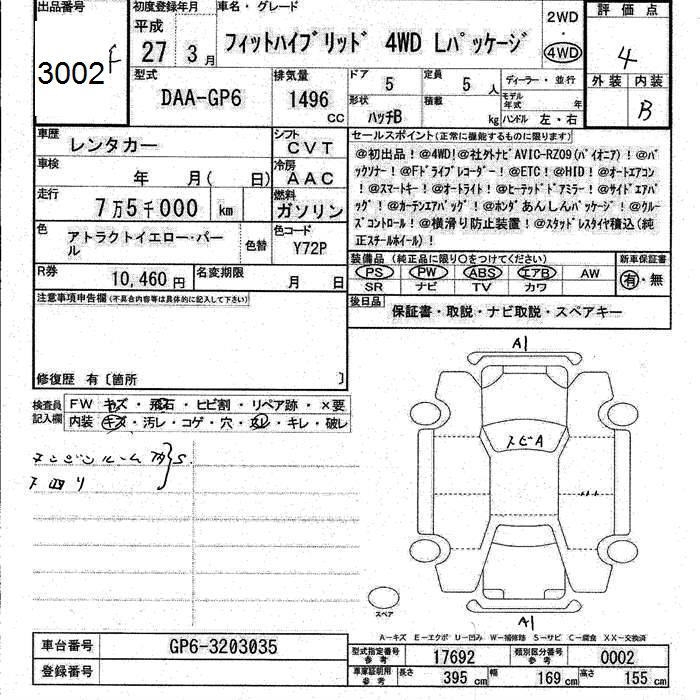 出品番号
3002 F
初度登録年月
平成
27 3月
車名・グレード
フィットハイブリッド 4WD Lパッケージ
2WD
・
4WD
評価点
4
外装 内装
B
型式
DAA-GP6
排気量
1496
CC
ドア
5
定員
5 人
形状
ハッチB
積載
kg
ディーラー・並行
モデル年式 年
ハンドル 左・右
車歴
レンタカー
シフト
CVT
車検
年 月( 日)
冷房
AAC
走行
7万5千000 km
燃料
ガソリン
色
アトラクトイエロー・パール
色替
色コード
Y72P
R券
10,460 円
名変期限
月 日
セールスポイント(正常に機能するものに限ります)
@初出品!@4WD!@社外ナビAVIC-RZ09(パイオニア)!@バ
ックソナー!@Fドライブレコーダー!@ETC!@HID!@オートエアコン
!@スマートキー!@オートライト!@ヒーテッドドアミラー!@サイドエアバ
ッグ!@カーテンエアバッグ!@ホンダあんしんパッケージ!@クルー
ズコントロール!@横滑り防止装置!@スタッドレスタイヤ積込(純
正スチールホイール)!
装備品(純正品に限り〇をつけてください)
新車保証書
PS PW ABS エアB AW
SR ナビ TV カワ
有・無
後日品
保証書・取説・ナビ取説・スペアキー
注意事項申告欄(不具合内容等は具体的に記入して下さい)
修復歴 有〔箇所 〕
検査員記入欄
FW キズ・飛石・ヒビ割・リペア跡・×要
内装 キズ・汚レ・コゲ・穴・スレ・キレ・破レ
エンジンルーム内 S.
下回り
A1
スビA
A1
スペア
A-キズ E-エクボ U-凹み W-補修跡 S-サビ C-腐食 XX-交換済
車台番号
GP6-3203035
登録番号
型式指定番号
参考
17692
類別区分番号
参考
0002
車庫証明用
参考
長さ
395 cm
幅
169 cm
高さ
155 cm